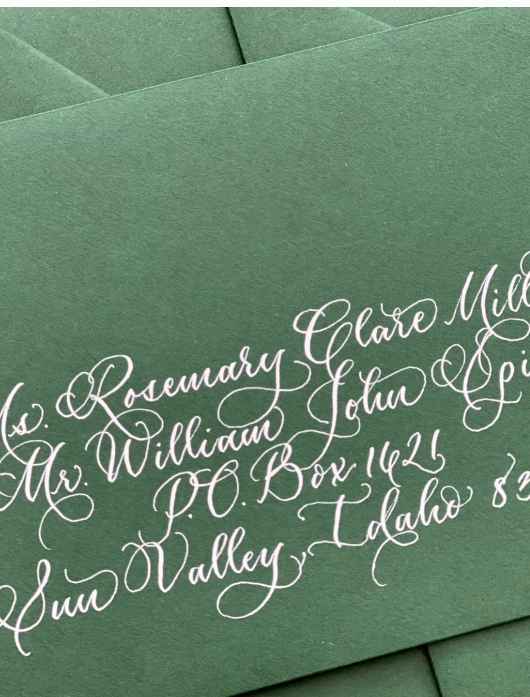 Ms. Rosemary Clare
Mr. William John
P.O. Box 1621
Sun Valley, Idaho